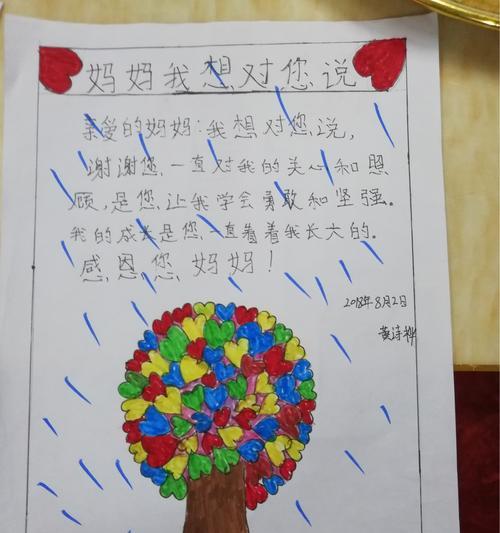 妈妈我想对您说
亲爱的妈妈:我想对您说,
谢谢您一直对我的关心和照
顾,是您让我学会勇敢和坚强。
我的成长是您一直看着我长大的。
感恩您妈妈!
2018年8月2日
黄诗桦